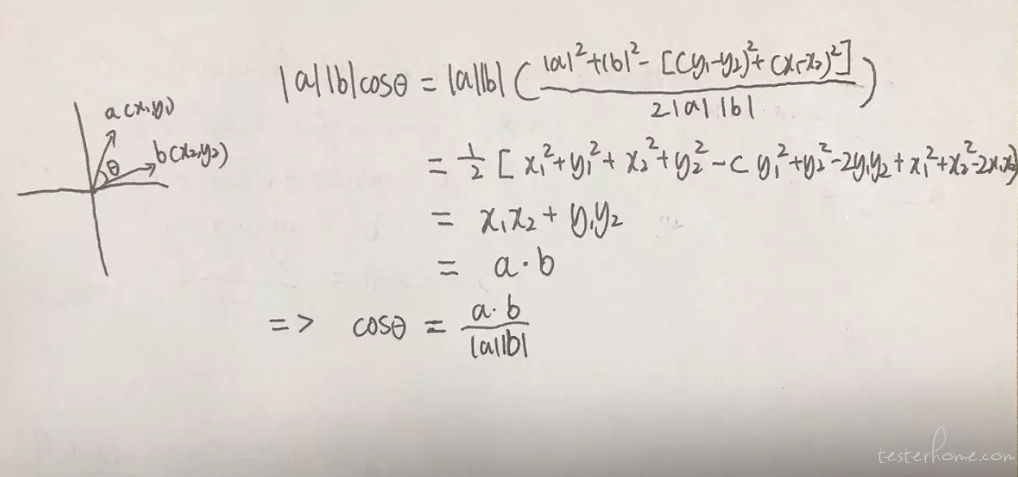 a(x₁,y₁)
θ
b(x₂,y₂)
|a||b|cosθ = |a||b| ( (|a|²+|b|²-[(y₁-y₂)²+(x₁-x₂)²]) / (2|a|·|b|) )
= 1/2 [ x₁²+y₁²+x₂²+y₂²-( y₁²+y₂²-2y₁y₂+x₁²+x₂²-2x₁x₂)
= x₁x₂+y₁y₂
= a·b
=> cosθ = a·b / |a||b|
testerhome.com